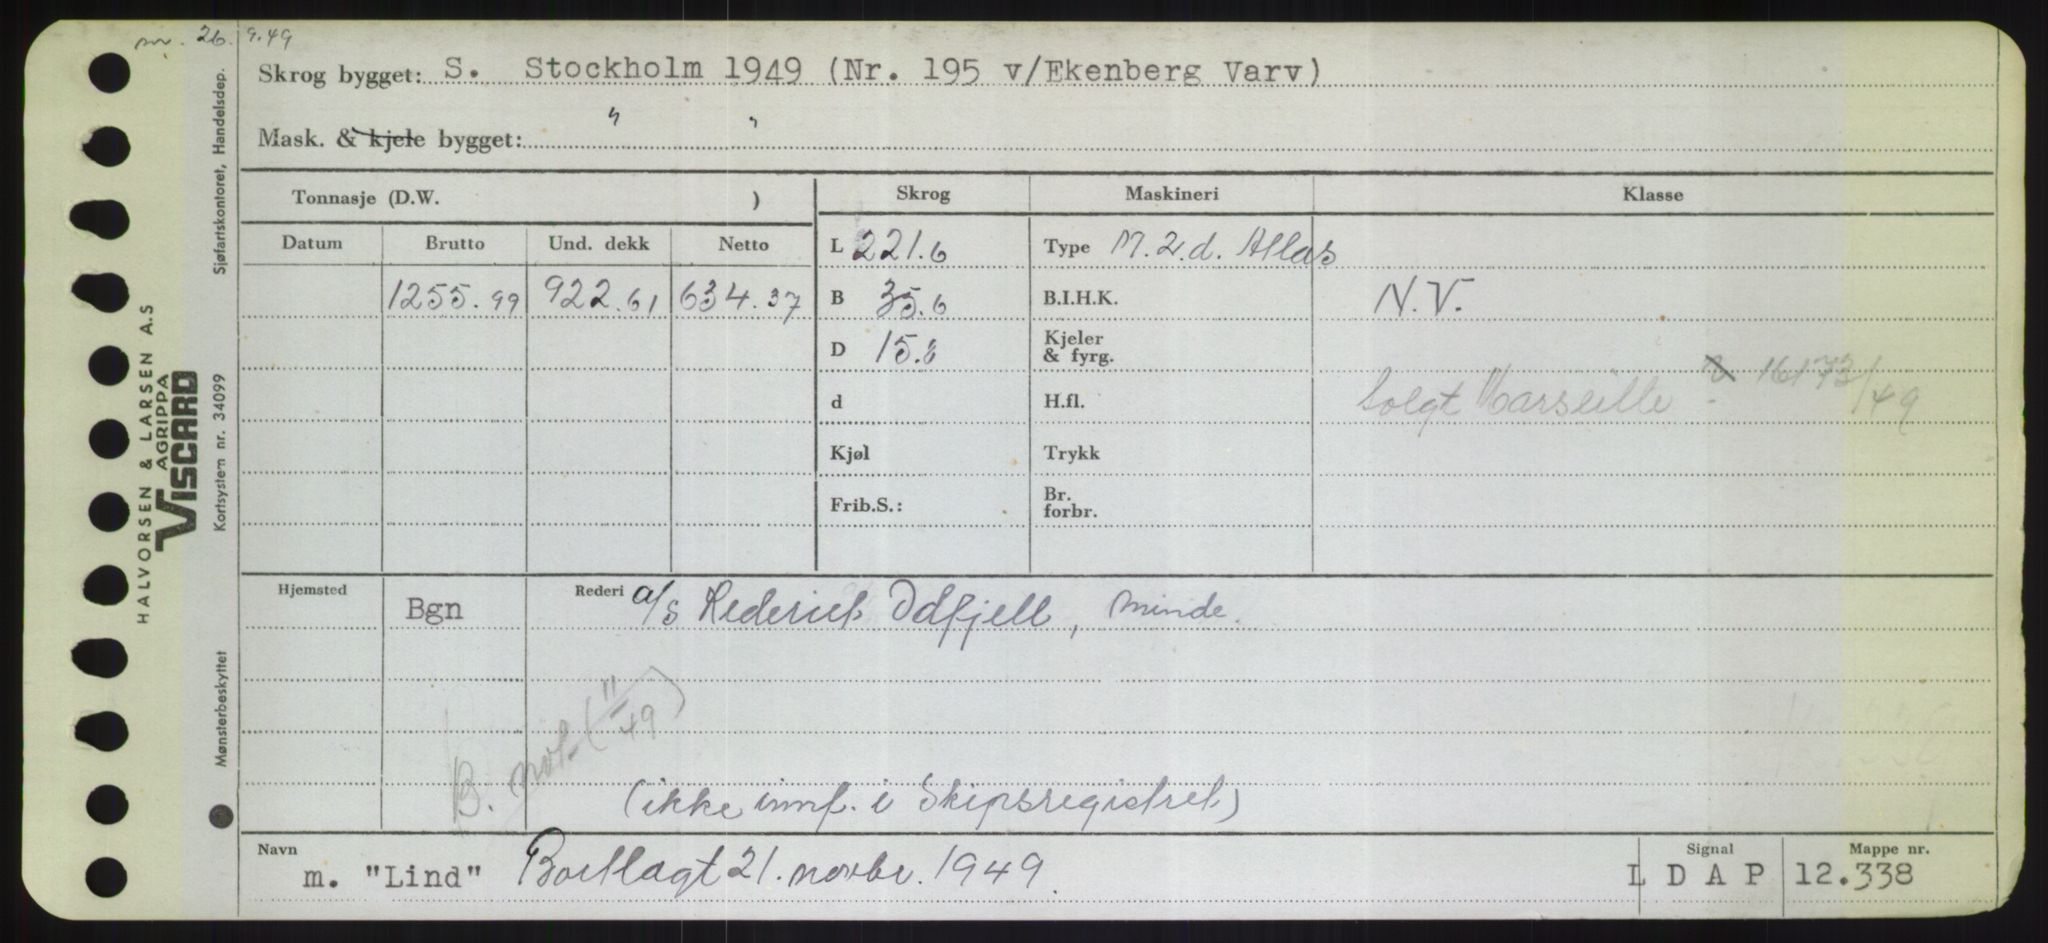 nr. 26.9.49
Skrog bygget: S. Stockholm 1949 (Nr. 195 v/Ekenberg Varv)
Mask. & kjele bygget: " "
Tonnasje (D.W. )
Skrog
Maskineri
Klasse
Datum Brutto Und. dekk Netto
1255.99 922.61 634.37
L 221.6
B 35.6
D 15.8
d
Kjøl
Frib.S.:
Type M. 2.d. Atlas
B.I.H.K.
Kjeler
& fyrg.
H.fl.
Trykk
Br.
forbr.
N.V.
Solgt Marseille 16173/49
Hjemsted Bgn
Rederi a/s Rederiet Odfjell, Minde.
B. not. (11/49)
(ikke innf. i Skipsregistret)
Navn
m. "Lind" Bortlagt 21. novbr. 1949.
Signal
L D A P
Mappe nr.
12.338
HALVORSEN & LARSEN A.S
AGRIPPA
VISCARD
Sjøfartskontoret, Handelsdep.
Kortsystem nr. 34099
Mønsterbeskyttet